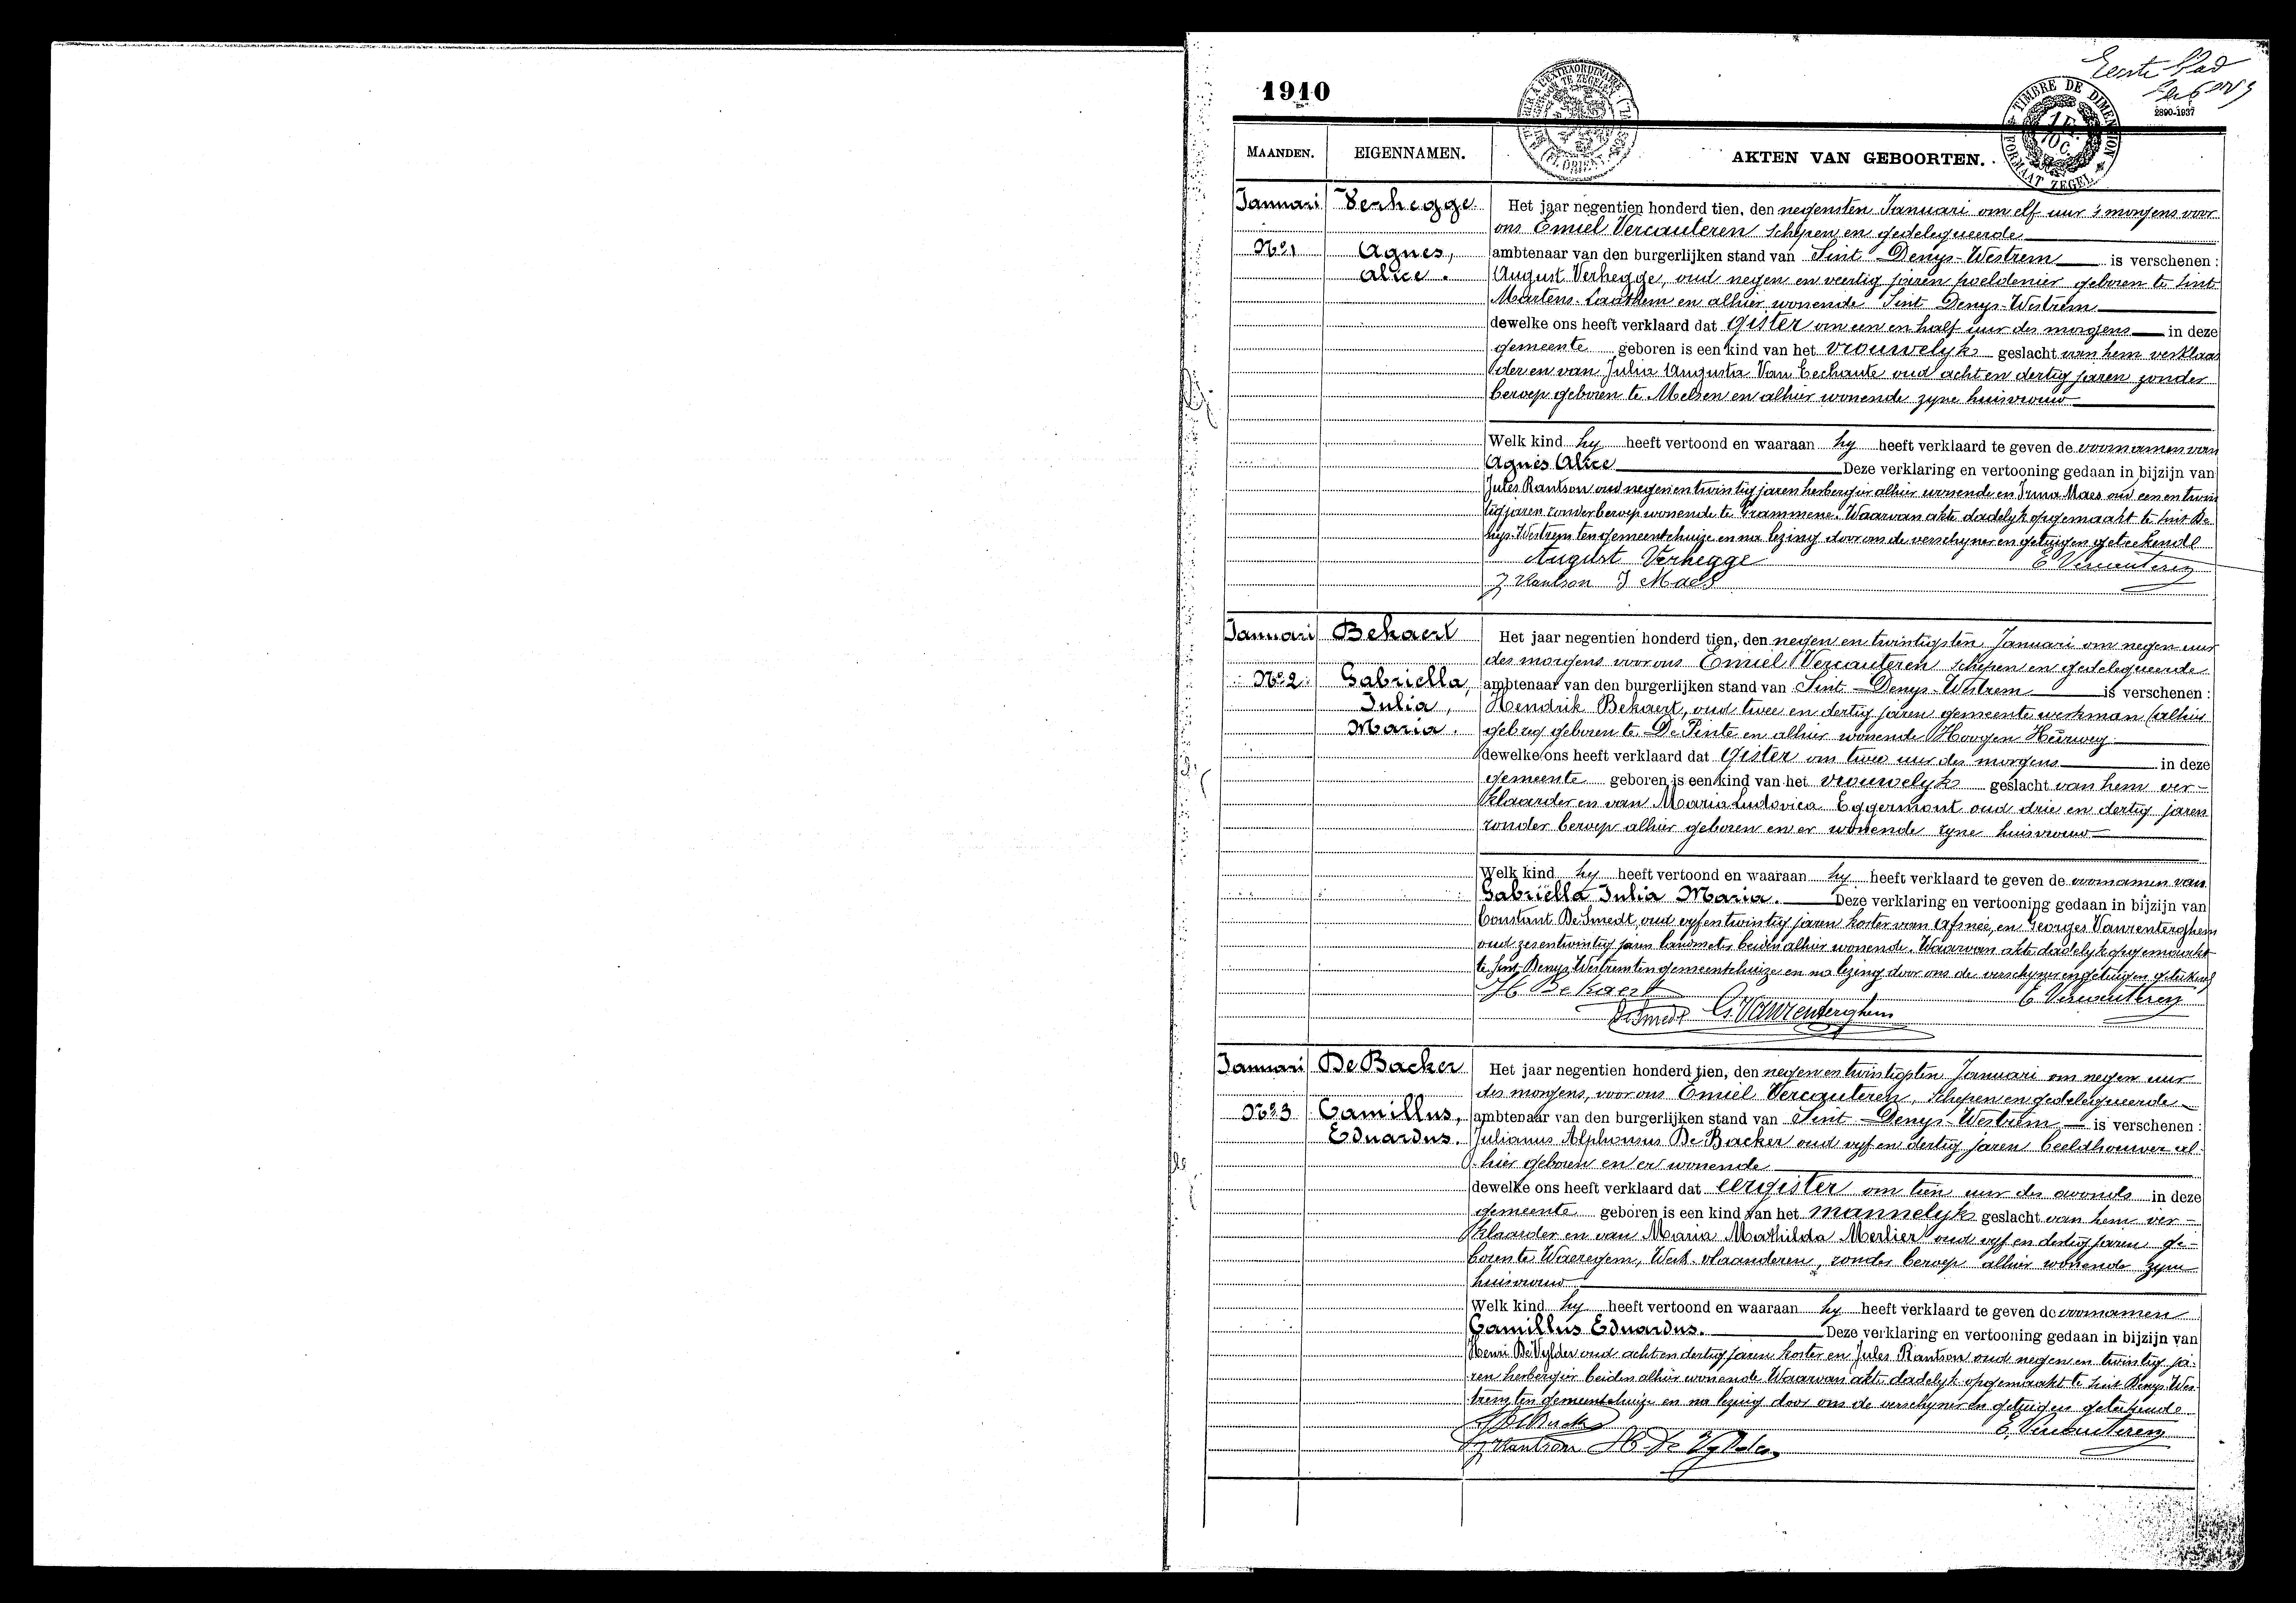 Eerste blad
1910
2890-1937
TIMBRE DE DIMENSION
FORMAAT ZEGEL
1 Fr.
10 C.
MAANDEN. EIGENNAMEN. AKTEN VAN GEBOORTEN.
Januari Verhegge Het jaar negentien honderd tien, den negensten Januari om elf uur 's morgens voor
ons Emiel Vercauteren schepen en gedelegueerde
No 1 Agnes, ambtenaar van den burgerlijken stand van Sint Denys-Westrem is verschenen :
Alice. August Verhegge, oud negen en veertig jaren poeldenier geboren te Sint
Martens-Laathem en alhier wonende Sint Denys-Westrem
dewelke ons heeft verklaard dat gister om een en half uur des morgens in deze
gemeente geboren is een kind van het vrouwelyk geslacht van hem verklaar
der en van Julia Augusta Van Eechaute oud acht en dertig jaren zonder
beroep geboren te Melsen en alhier wonende zyne huisvrouw
Welk kind hy heeft vertoond en waaraan hy heeft verklaard te geven de voornamen van
Agnes Alice Deze verklaring en vertooning gedaan in bijzijn van
Jules Rantson oud negen en twintig jaren herbergier alhier wonende en Irma Maes oud een en twin
tig jaren zonder beroep wonende te Grammene. Waarvan akte dadelyk opgemaakt te Sint De
nys-Westrem ten gemeentehuize en na lezing door ons de verschyner en getuigen geteekend
August Verhegge E Vercauteren
J Rantson I Maes
Januari Bekaert Het jaar negentien honderd tien, den negen en twintigsten Januari om negen uur
des morgens voor ons Emiel Vercauteren schepen en gedelegueerde
No 2 Gabriella, ambtenaar van den burgerlijken stand van Sint Denys-Westrem is verschenen :
Julia, Hendrik Bekaert, oud twee en dertig jaren gemeente werkman (alhier
Maria. geboren te De Pinte en alhier wonende Hoogen Heirweg
dewelke ons heeft verklaard dat gister om twee uur des morgens in deze
gemeente geboren is een kind van het vrouwelyk geslacht van hem ver-
klaarder en van Maria Ludovica Eggermont oud drie en dertig jaren
zonder beroep alhier geboren en er wonende zyne huisvrouw
Welk kind hy heeft vertoond en waaraan hy heeft verklaard te geven de voornamen van
Gabriëlla Julia Maria. Deze verklaring en vertooning gedaan in bijzijn van
Constant De Smedt, oud vyf en twintig jaren koster van Afsneé, en Georges Vanrenterghem
oud zes en twintig jaren beiden alhier wonende. Waarvan akte dadelyk opgemaakt
te Sint-Denys-Westrem ten gemeentehuize en na lezing door ons de verschyner en getuigen geteekend
H Bekaert E Vercauteren
De Smedt G. Vanrenterghem
Januari De Backer Het jaar negentien honderd tien, den negen en twintigsten Januari om negen uur
des morgens, voor ons Emiel Vercauteren, schepen en gedelegueerde
No 3 Camillus, ambtenaar van den burgerlijken stand van Sint Denys-Westrem is verschenen :
Eduardus. Julianus Alphonsus De Backer oud vyf en dertig jaren beeldhouwer al-
hier geboren en er wonende
dewelke ons heeft verklaard dat eergister om tien uur des avonds in deze
gemeente geboren is een kind van het mannelyk geslacht van hem ver-
klaarder en van Maria Mathilda Merlier oud vyf en dertig jaren ge-
boren te Waeregem, West-vlaanderen, zonder beroep alhier wonende zyne
huisvrouw
Welk kind hy heeft vertoond en waaraan hy heeft verklaard te geven de voornamen
Camillus Eduardus. Deze verklaring en vertooning gedaan in bijzijn van
Henri De Vylder oud acht en dertig jaren koster en Jules Rantson oud negen en twintig ja-
ren herbergier beiden alhier wonende Waarvan akte dadelyk opgemaakt te Sint Denys-Wes-
trem ten gemeentehuize en na lezing door ons de verschyner en getuigen geteekend
J De Backer E. Vercauteren
J Rantson H De Vylder